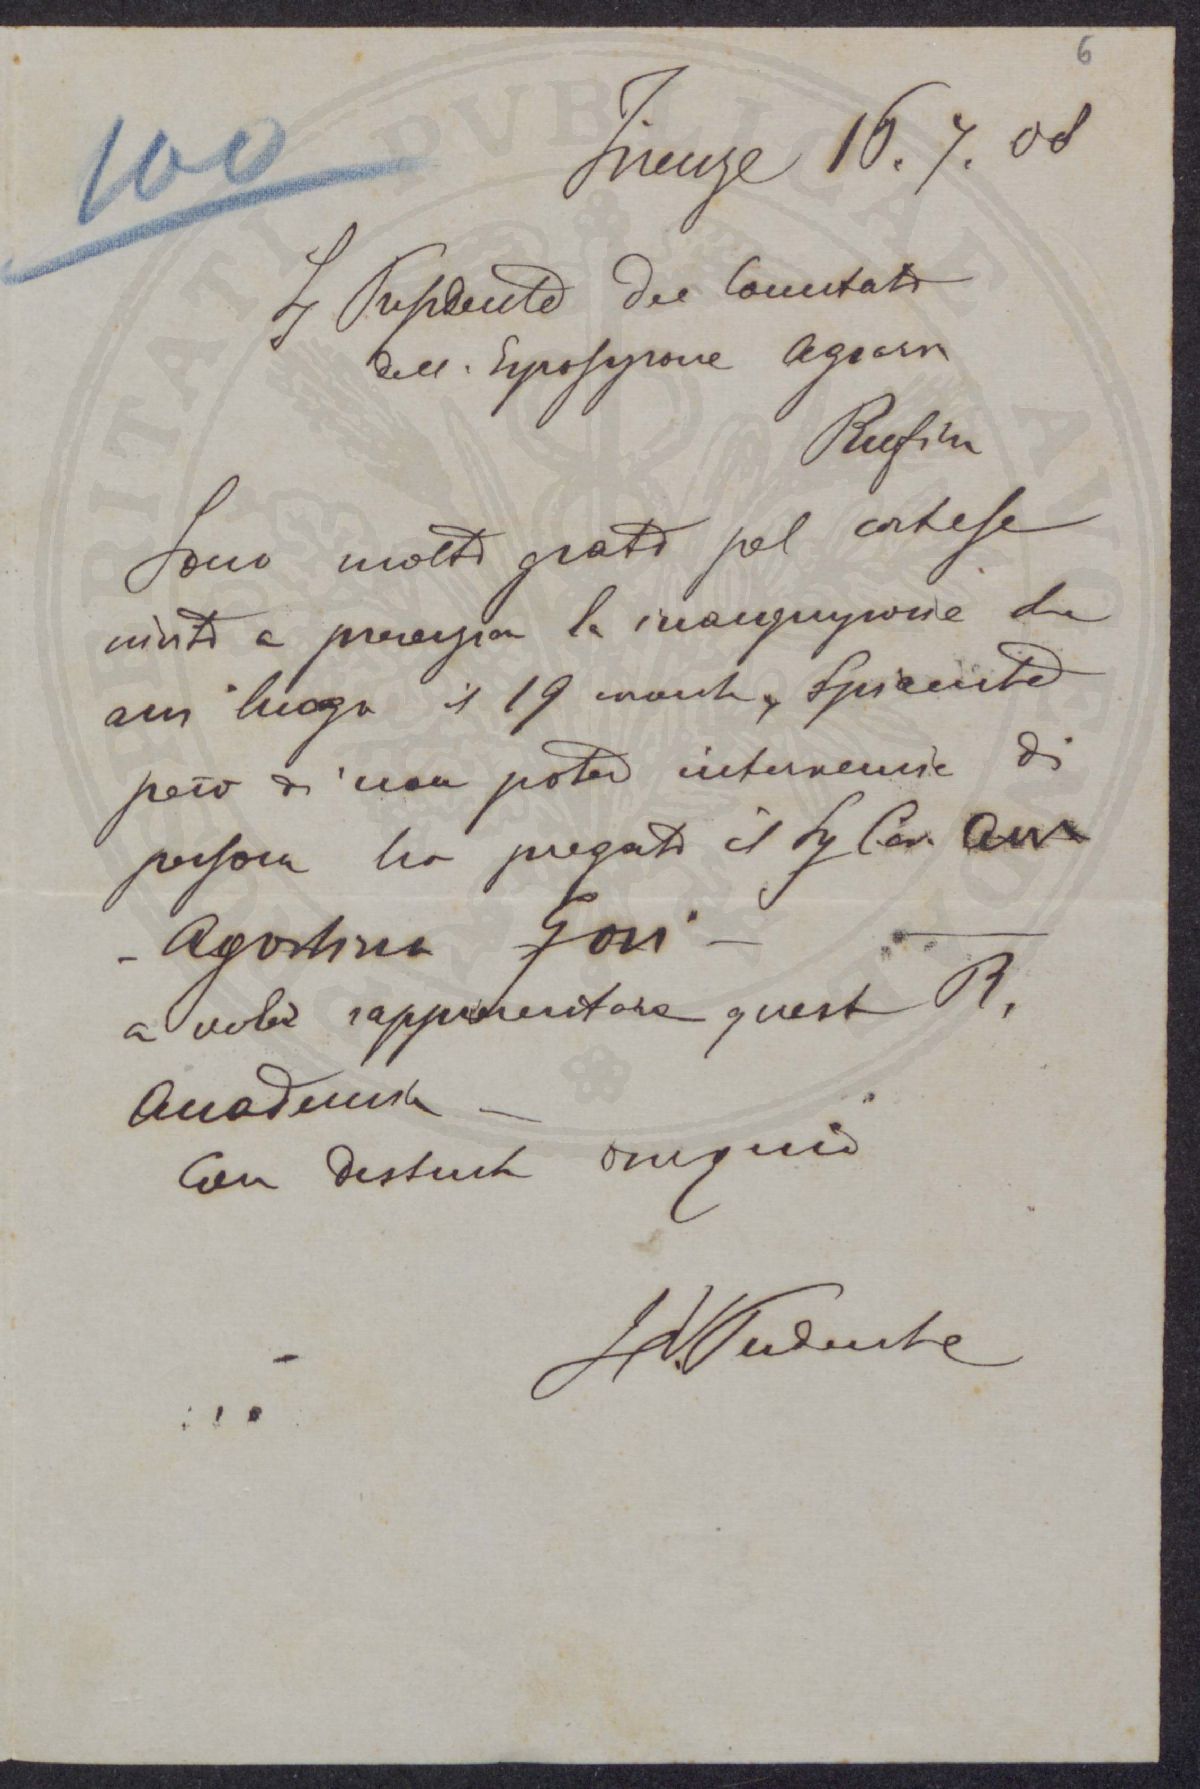 6
100
Firenze 16. 7. 08
Sig Presidente del Comitato
dell' Esposizione Agraria
Rufina
Sono molto grato pel cortese
invito a presenziare la inaugurazione che
avrà luogo il 19 corrente, spiacente
però di non poter intervenire di
persona ho pregato il Sig Cav. Avv
- Agostino Gori -
a voler rappresentare questa R.
Accademia -
Con distinto ossequio
Il V. Presidente